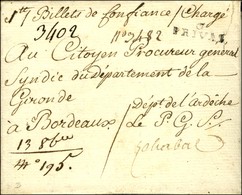 Billets de Confiance / Chargé
3402 n° 482 PRIVAS
Au Citoyen Procureur général
Syndic du Département de la
Gironde
à Bordeaux
Dépt de l'ardèche
Le P. G. S.
13 8bre
4° 195.